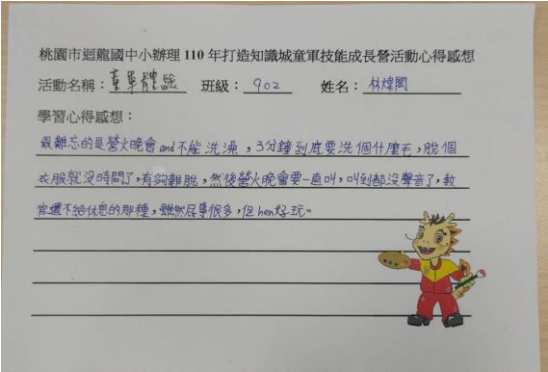 桃園市迴龍國中小辦理 110 年打造知識城童軍技能成長營活動心得感想
活動名稱：童軍體驗 班級：902 姓名：林煒閎
學習心得感想：
最難忘的是營火晚會and不能洗澡，3分鐘到底要洗個什麼毛，脫個
衣服就沒時間了，有夠難脫，然後營火晚會要一直叫，叫到都沒聲音了，教
官還不給休息的那種，雖然屁事很多，但hen好玩。